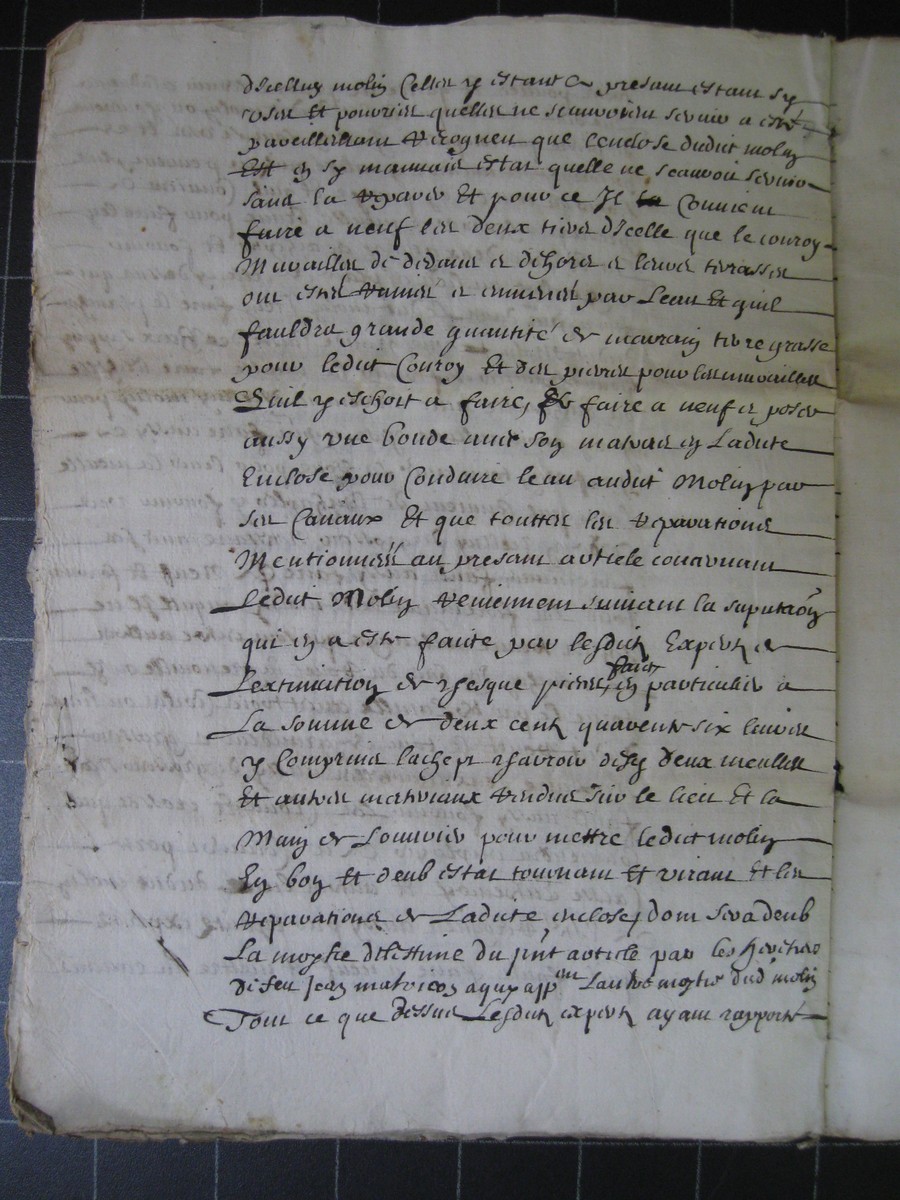 d'Icelluy molin Celles y estant a present estant sy
uses et pouries quelles ne scauroient servir a estre
pareillemant recogneu que lenclose dudict molin
est en sy mauvais estat quelle ne scauroit servir
sans la reparer et pour ce Il Convient
faire a neuf les deux tiers d'Icelle que le couroy
Murailles de dedans et dehors et leurs terrasses
ont estés ruinés et enmenés par Leau et quil
fauldra grande quantité de marain terre grasse
pour ledict Couroy et des pierres pour les murailles
Quil y eschoit a faire, faire a neuf et poser
aussy une bonde avec son en Ladicte
Enclose pour Conduire leau audict Molin par
ses Canaux et que touttes les reparations
Mentionnées au presant article concernant
Ledict Molin reviennent suivant la suputaōn
qui en a esté faicte par lesdicts Experts et
Lextimation de chesque pieces faict en particulier a
La somme de deux cents quarente six livres
y Compris lachept charroir desd deux meulles
et autres materiaux rendus sur le lieu et la
Main de Louvrier pour mettre ledict molin
En bon et deub estat tournant et virant et les
reparations de Ladicte enclose, dont sera deub
La moytie de lestime du pnt article par les heritiers
de feu Jean a quy app.ent Lautre moytie dud molin
Tout ce que dessus Lesdicts experts ayant rapporté